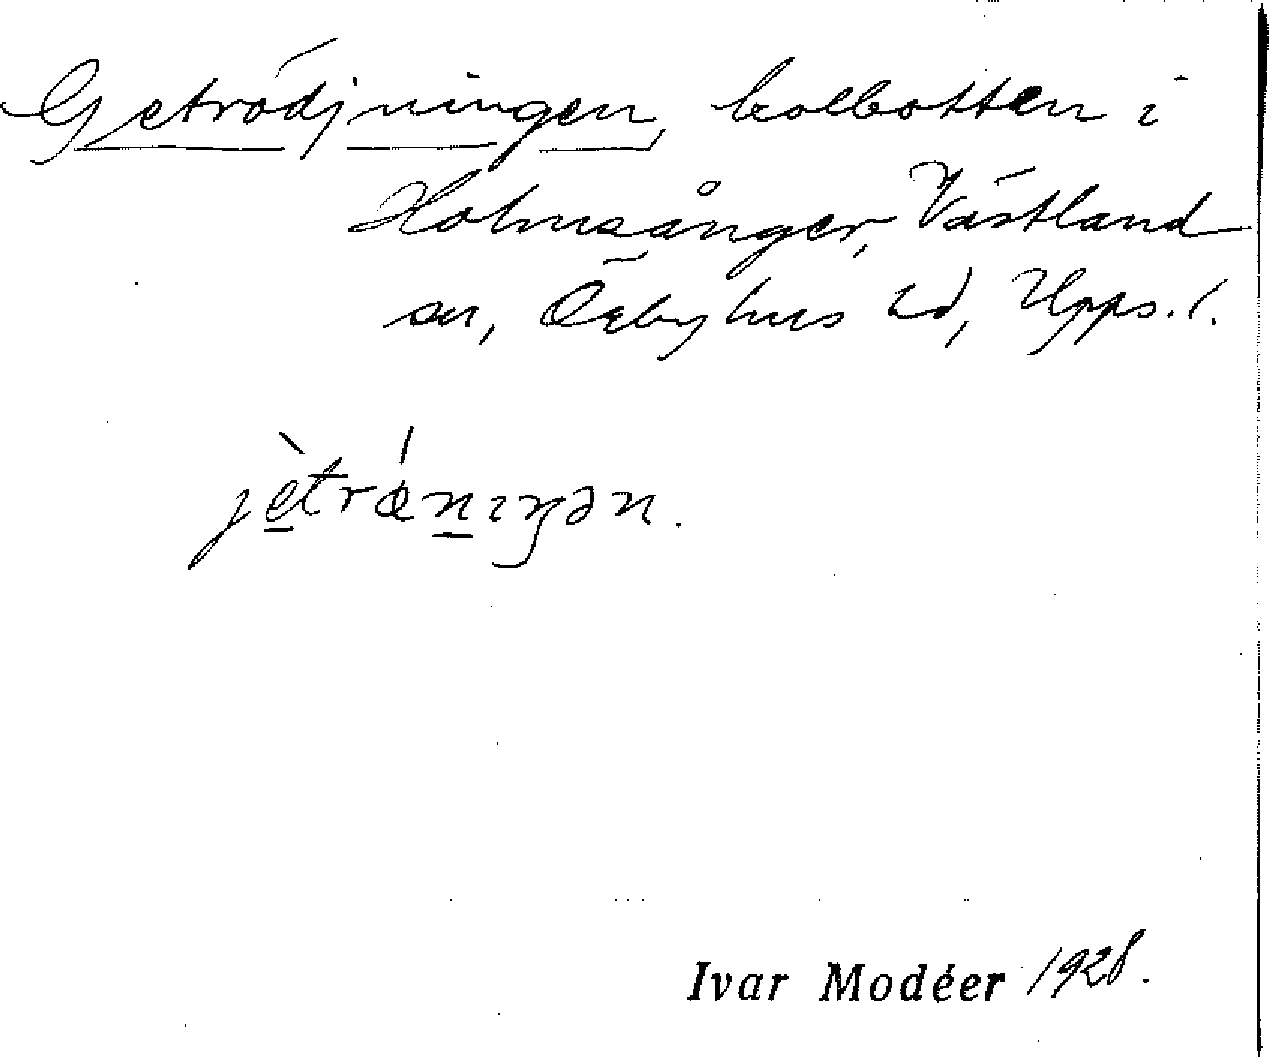 Getrödjningen, kolbotten i
Holmsånger, Västland
sn, Örbyhus hd, Upps. l.
Ivar Modéer 1928.